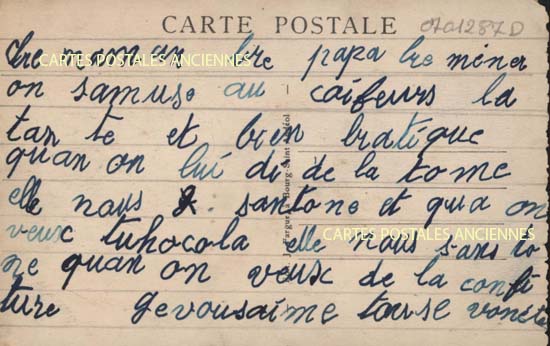 CARTE POSTALE
0701287D
CARTES POSTALES ANCIENNES
chre meoman bre papa bre méner
on samuse au coifeurs la
tan te et bien bratique
quan on lui di de la tome
elle nous santone et qua on
veux tuhocola elle nous san to
CARTES POSTALES ANCIENNES
ne quan on veux de la confi
ture gevousaime touse
Bourg-Saint